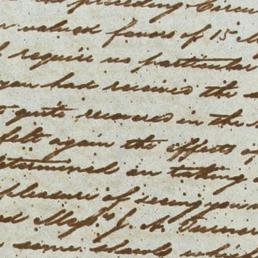 preceding
valued favors of 15
require no particular
you had received the
quite recovered in the
felt again the effects of
determined on taking
pleasure of seeing your
and Messrs J. A.
same